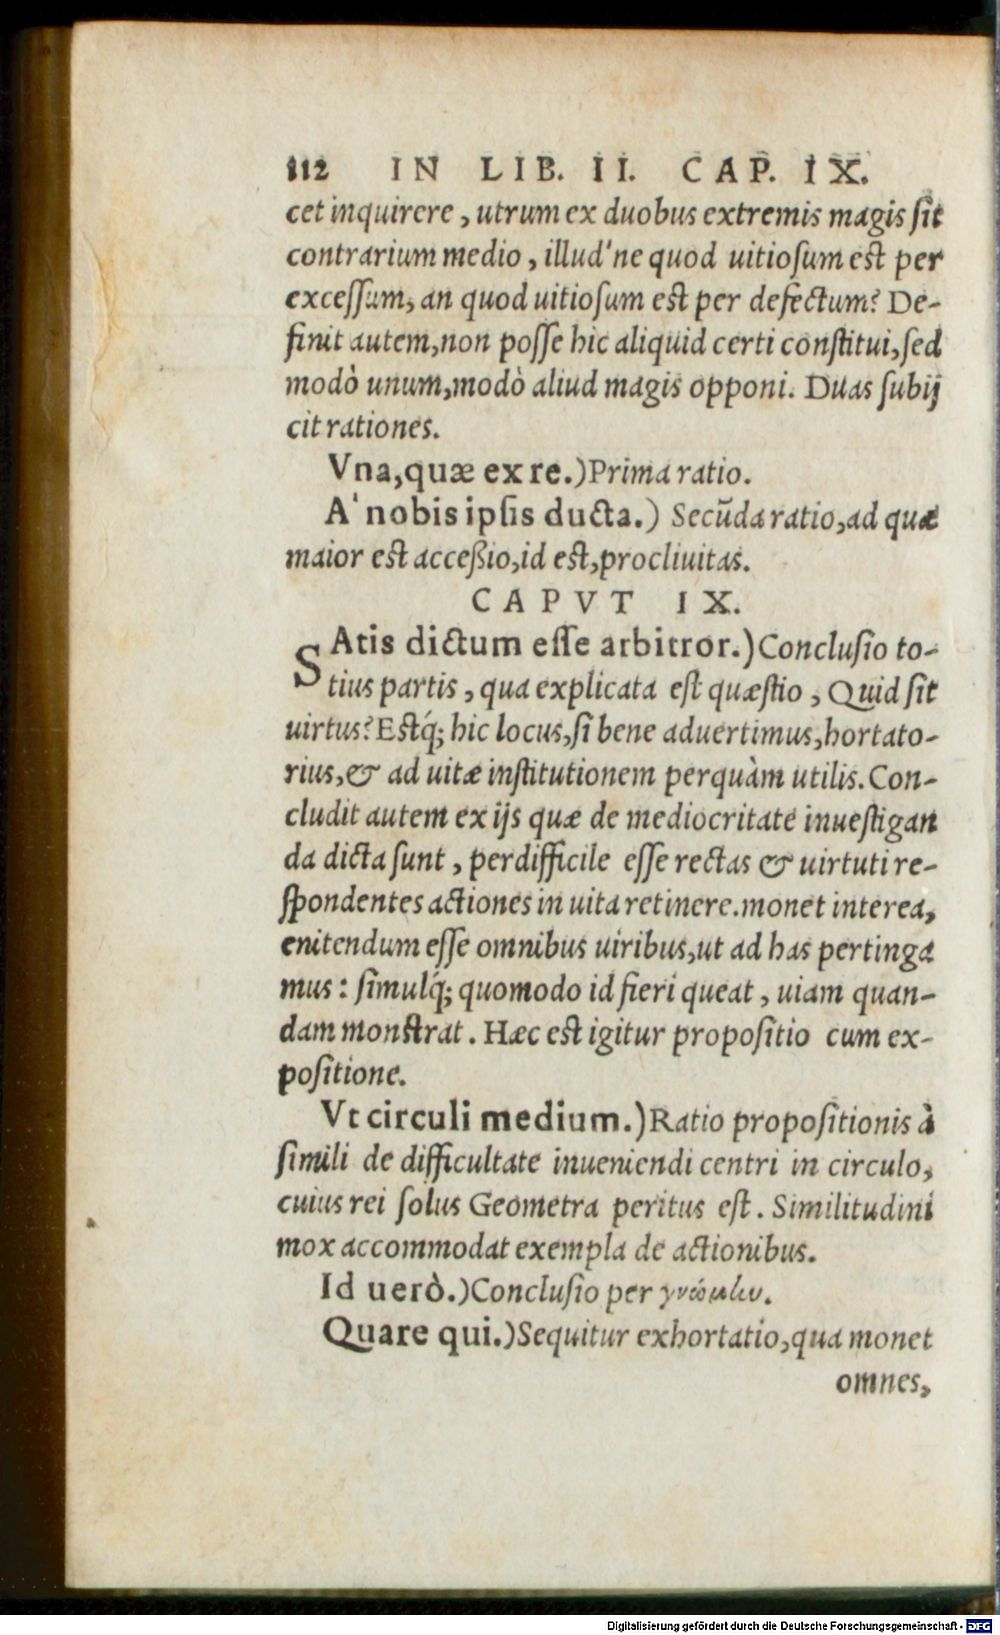 112 IN LIB. II. CAP. IX.
cet inquirere, utrum ex duobus extremis magis ſit
contrarium medio, illud'ne quod uitioſum est per
exceſſum, an quod uitioſum est per defectum? De-
finit autem, non poſſe hic aliquid certi conſtitui, ſed
modò unum, modò aliud magis opponi. Duas ſubij
cit rationes.
Vna, quæ ex re.) Prima ratio.
A' nobis ipſis ducta.) Secũda ratio, ad quæ
maior est acceßio, id est, procliuitas.
CAPVT IX.
SAtis dictum eſſe arbitror.) Concluſio to-
tius partis, qua explicata eſt quæſtio, Quid ſit
uirtus? Estq́; hic locus, ſi bene aduertimus, hortato-
rius, & ad uitæ inſtitutionem perquàm utilis. Con-
cludit autem ex ijs quæ de mediocritate inueſtigan
da dicta ſunt, perdifficile eſſe rectas & uirtuti re-
ſpondentes actiones in uita retinere. monet interea,
enitendum eſſe omnibus uiribus, ut ad has pertinga
mus: ſimulq́; quomodo id fieri queat, uiam quan-
dam monſtrat. Hæc est igitur propoſitio cum ex-
poſitione.
Vt circuli medium.) Ratio propoſitionis à
ſimili de difficultate inueniendi centri in circulo,
cuius rei ſolus Geometra peritus eſt. Similitudini
mox accommodat exempla de actionibus.
Id uerò.) Concluſio per
Quare qui.) Sequitur exhortatio, qua monet
omnes,
Digitalisierung gefördert durch die Deutsche Forschungsgemeinschaft - DFG